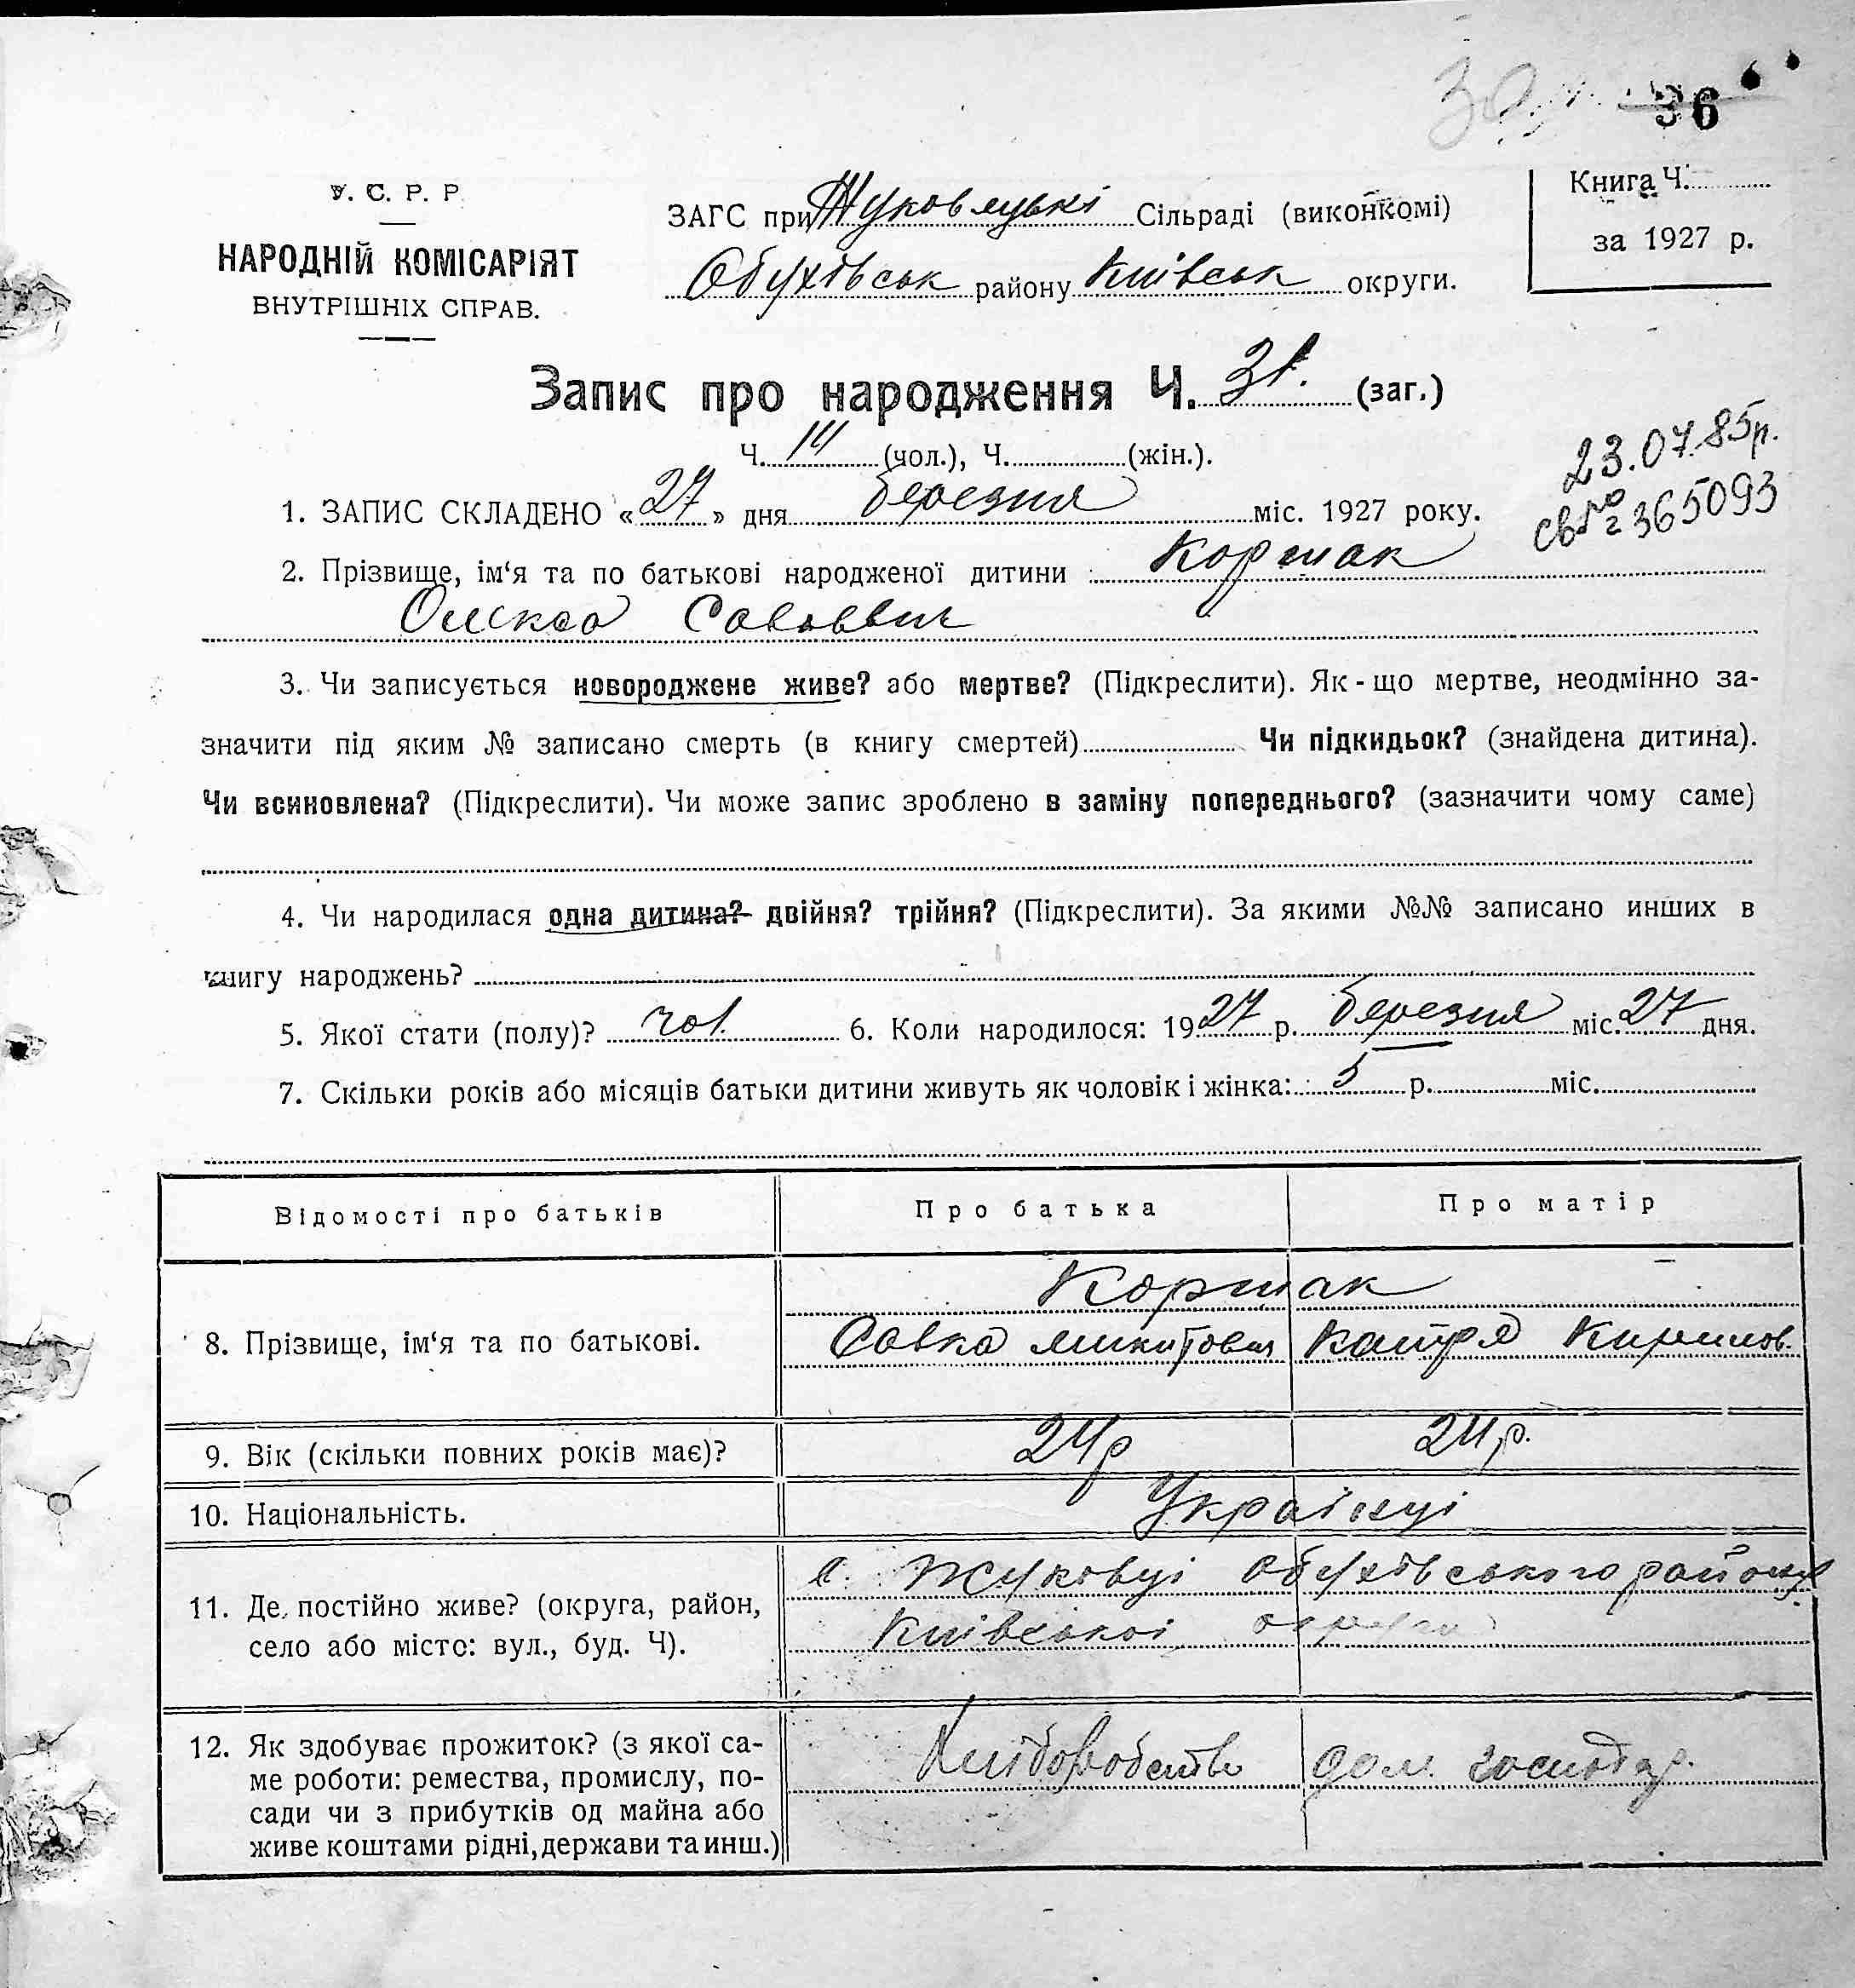 36
У. С. Р. Р.
НАРОДНІЙ КОМІСАРІЯТ
ВНУТРІШНІХ СПРАВ.
ЗАГС при Жуковецькі Сільраді (виконкомі)
Обухівськ району Київськ округи.
Книга Ч.
за 1927 р.
Запис про народження Ч. 31. (заг.)
Ч. 14 (чол.), Ч. (жін.).
23.07.85р.
св № 365093
1. ЗАПИС СКЛАДЕНО «27» дня березня міс. 1927 року.
2. Прізвище, ім‘я та по батькові народженої дитини: Коршак
Олекса Сававвич
3. Чи записується новороджене живе? або мертве? (Підкреслити). Як-що мертве, неодмінно за-
значити під яким № записано смерть (в книгу смертей) Чи підкидьок? (знайдена дитина).
Чи всиновлена? (Підкреслити). Чи може запис зроблено в заміну попереднього? (зазначити чому саме)
4. Чи народилася одна дитина? двійня? трійня? (Підкреслити). За якими №№ записано инших в
книгу народжень?
5. Якої стати (полу)? чол. 6. Коли народилося: 1927 р. березня міс. 27 дня.
7. Скільки років або місяців батьки дитини живуть як чоловік і жінка: 5 р. міс.
Відомості про батьків Про батька Про матір
Коршак
8. Прізвище, ім‘я та по батькові. Савка Микитович Катря Кирилов.
9. Вік (скільки повних років має)? 24р 24р.
10. Національність. Українці
с. Жуковці Обухівського району
11. Де постійно живе? (округа, район,
Київської округи
село або місто: вул., буд. Ч).
12. Як здобуває прожиток? (з якої са-
ме роботи: ремества, промислу, по- Хліборобство дом. господар.
сади чи з прибутків од майна або
живе коштами рідні, держави та инш.)